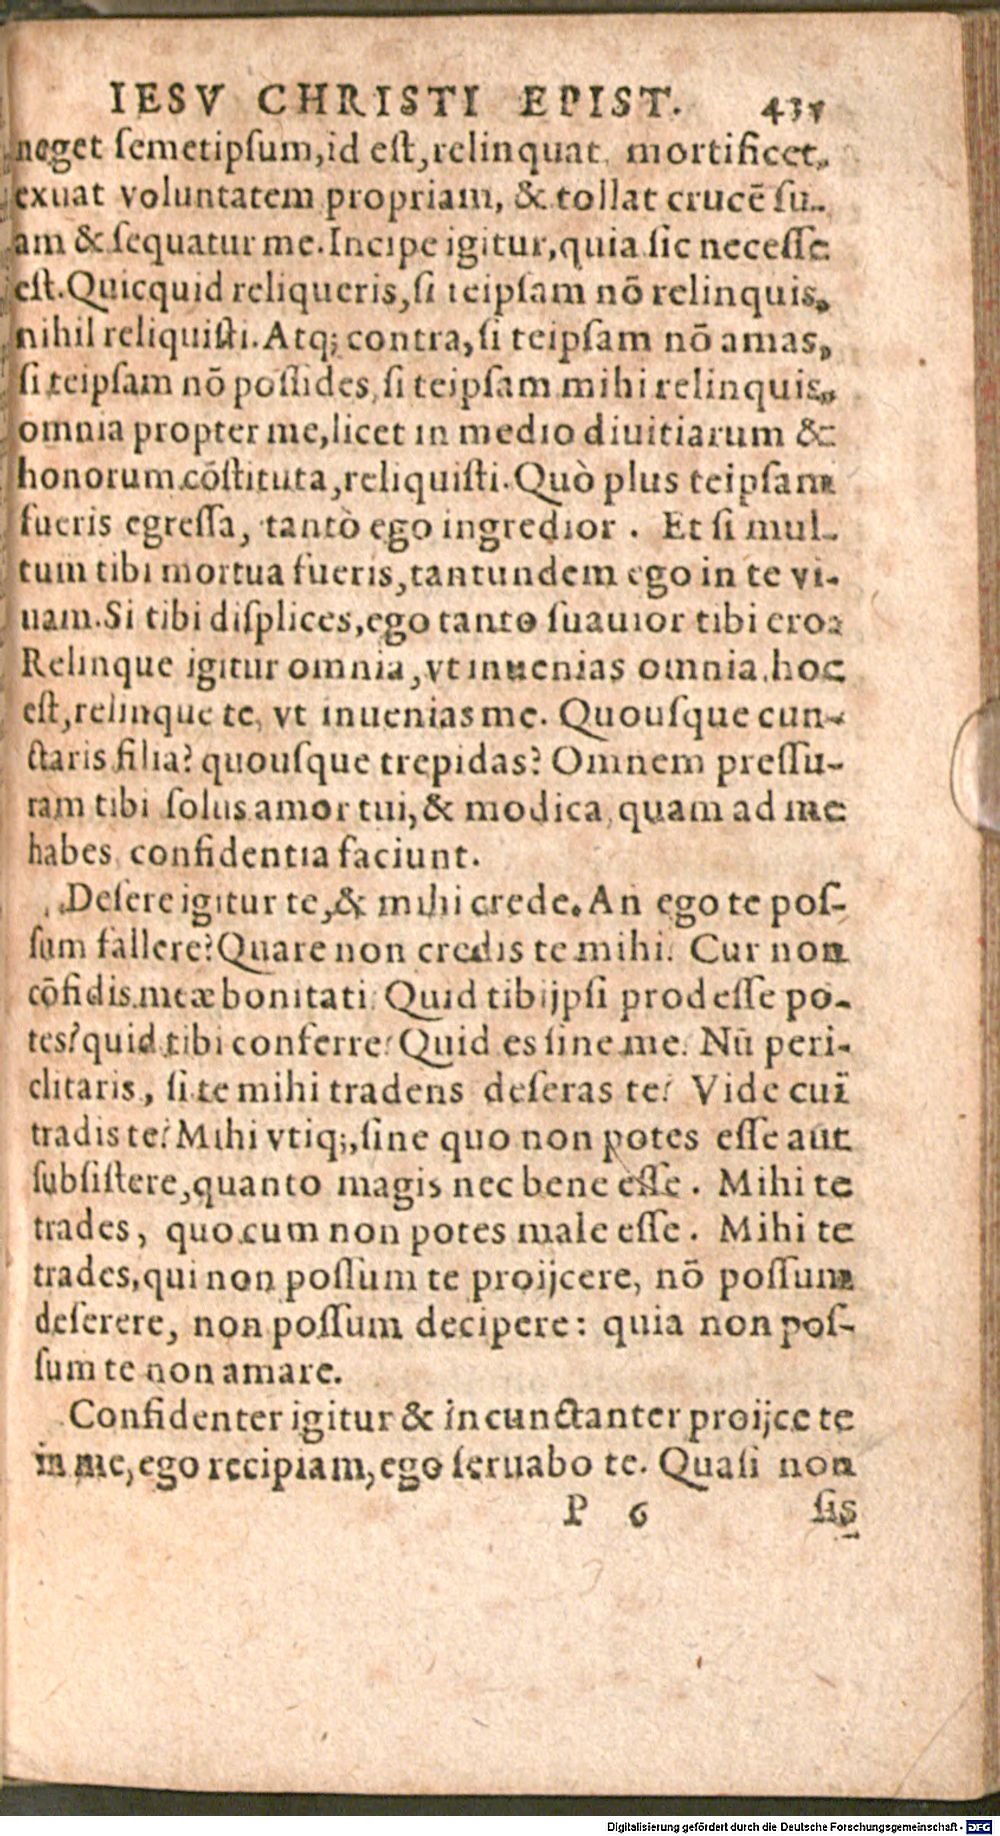 IESV CHRISTI EPIST. 43
neget ſemetipſum, id eſt, relinquat, mortificet,
exuat voluntatem propriam, & tollat crucē ſu-
am & ſequatur me. Incipe igitur, quia ſic neceſſe
eſt. Quicquid reliqueris, ſi teipſam nō relinquis,
nihil reliquiſti. Atq; contra, ſi teipſam nō amas,
ſi teipſam nō poſſides, ſi teipſam mihi relinquis,
omnia propter me, licet in medio diuitiarum &
honorum cōſtituta, reliquiſti. Quò plus teipſam
fueris egreſſa, tantò ego ingredior. Et ſi mul-
tum tibi mortua fueris, tantundem ego in te vi-
uam. Si tibi diſplices, ego tanto ſuauior tibi ero:
Relinque igitur omnia, vt inuenias omnia, hoc
eſt, relinque te, vt inuenias me. Quouſque cun-
ctaris filia? quouſque trepidas? Omnem preſſu-
ram tibi ſolus amor tui, & modica, quam ad me
habes, confidentia faciunt.
Deſere igitur te, & mihi crede. An ego te poſ-
ſum fallere? Quare non credis te mihi? Cur non
cōfidis meæ bonitati? Quid tibijpſi prodeſſe po-
tes? quid tibi conferre? Quid es ſine me? Nū peri-
clitaris, ſi te mihi tradens deſeras te? Vide cui
tradis te? Mihi vtiq;, ſine quo non potes eſſe aut
ſubſiſtere, quanto magis nec bene eſſe. Mihi te
trades, quo cum non potes male eſſe. Mihi te
trades, qui non poſſum te proijcere, nō poſſum
deſerere, non poſſum decipere: quia non poſ-
ſum te non amare.
Confidenter igitur & incunctanter proijce te
in me, ego recipiam, ego ſeruabo te. Quaſi non
P 6 ſis
Digitalisierung gefördert durch die Deutsche Forschungsgemeinschaft - DFG